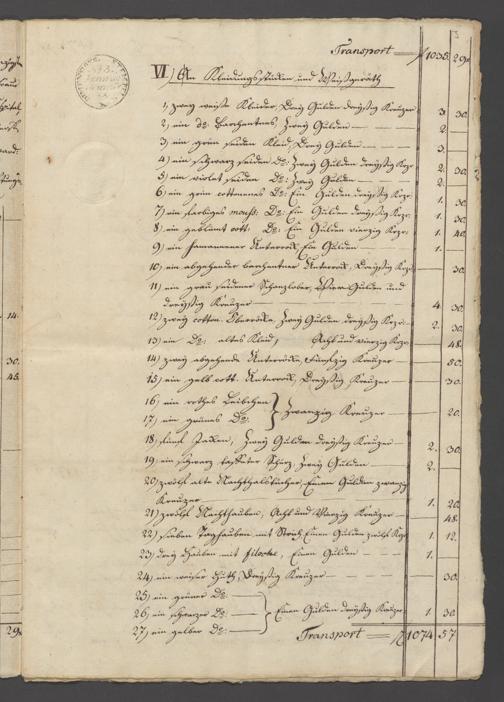 Transport f 1035. 29.
VI) An Kleidungsstücken und Weißgeräth
1) zwey weiße Kleider, Drey Gulden dreyßig Kreuzer 3. 30.
2) ein do: Barchentnes, Zwey Gulden 2.
3) ein grün seiden Kleid, Drey Gulden 3.
4) ein schwarz seiden Do: Zwey Gulden dreyßig Kzr. 2. 30.
5) ein violet seiden Do: Zwey Gulden 2.
6) ein grün cottonenes Do: Ein Gulden dreyßig Kzr. 1. 30.
7) ein farbiges Do: Ein Gulden dreyßig Kzr. 1. 30.
8) ein geblümt cott. Do: Ein Gulden vierzig Kzr. 1. 40.
9) ein Unterrock, Ein Gulden 1.
10) ein abgehender barchentner Unterrock, Dreyßig Kzr. 30.
11) ein grau seidener Vier Gulden und
dreyßig Kreuzer 4. 30.
12) zwey cotton. Überröcke, Zwey Gulden dreyßig Kzr. 2. 30.
13) ein Do: altes Kleid, Acht und vierzig Kzr. 48.
14) zwey abgehende Unterröcke, Fünfzig Kreuzer 50.
15) ein gelb cott. Unterrock, Dreyßig Kreuzer 30.
16) ein rothes Leibchen
17) ein grünes Do: Zwanzig Kreuzer 20.
18) fünf Jacken, Zwey Gulden dreyßig Kreuzer 2. 30.
19) ein schwarz taffeter Schurz, Zwey Gulden 2.
20) zwölf alte Nachthalstücher, Einen Gulden zwanzig
Kreuzer 1. 20.
21) zwölf Nachthauben, Acht und Vierzig Kreuzer 48.
22) sieben Taghauben mit Einen Gulden zwölf Kzr. 1. 12.
23) drey Hauben mit Einen Gulden 1.
24) ein weißer Huth, Dreyßig Kreuzer 30.
25) ein grüner Do:
26) ein schwarzer Do: Einen Gulden dreyßig Kreuzer 1. 30.
27) ein gelber Do:
Transport f 1074 57
14.
30.
45.
29.